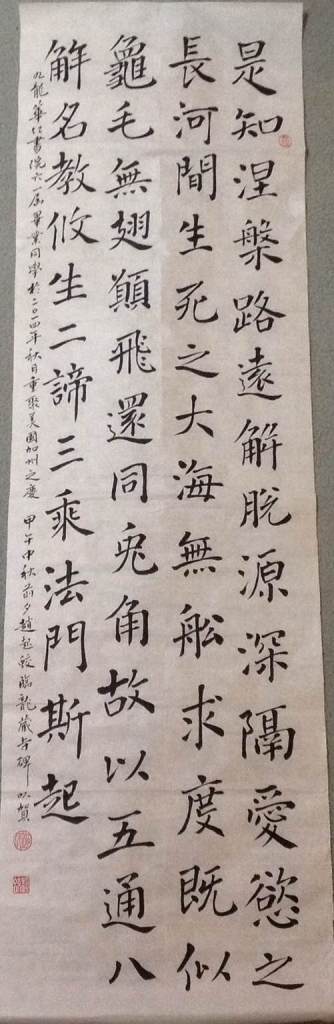 是知涅槃路遠解脫源深隔愛慾之
長河間生死之大海無船求度既似
龜毛無翅願飛還同兎角故以五通八
解名教攸生二諦三乘法門斯起
九龍華仁書院六一屆畢業同學於二〇一四年秋日重聚美國加州之慶 甲午中秋前夕趙起蛟臨龍藏寺碑以賀